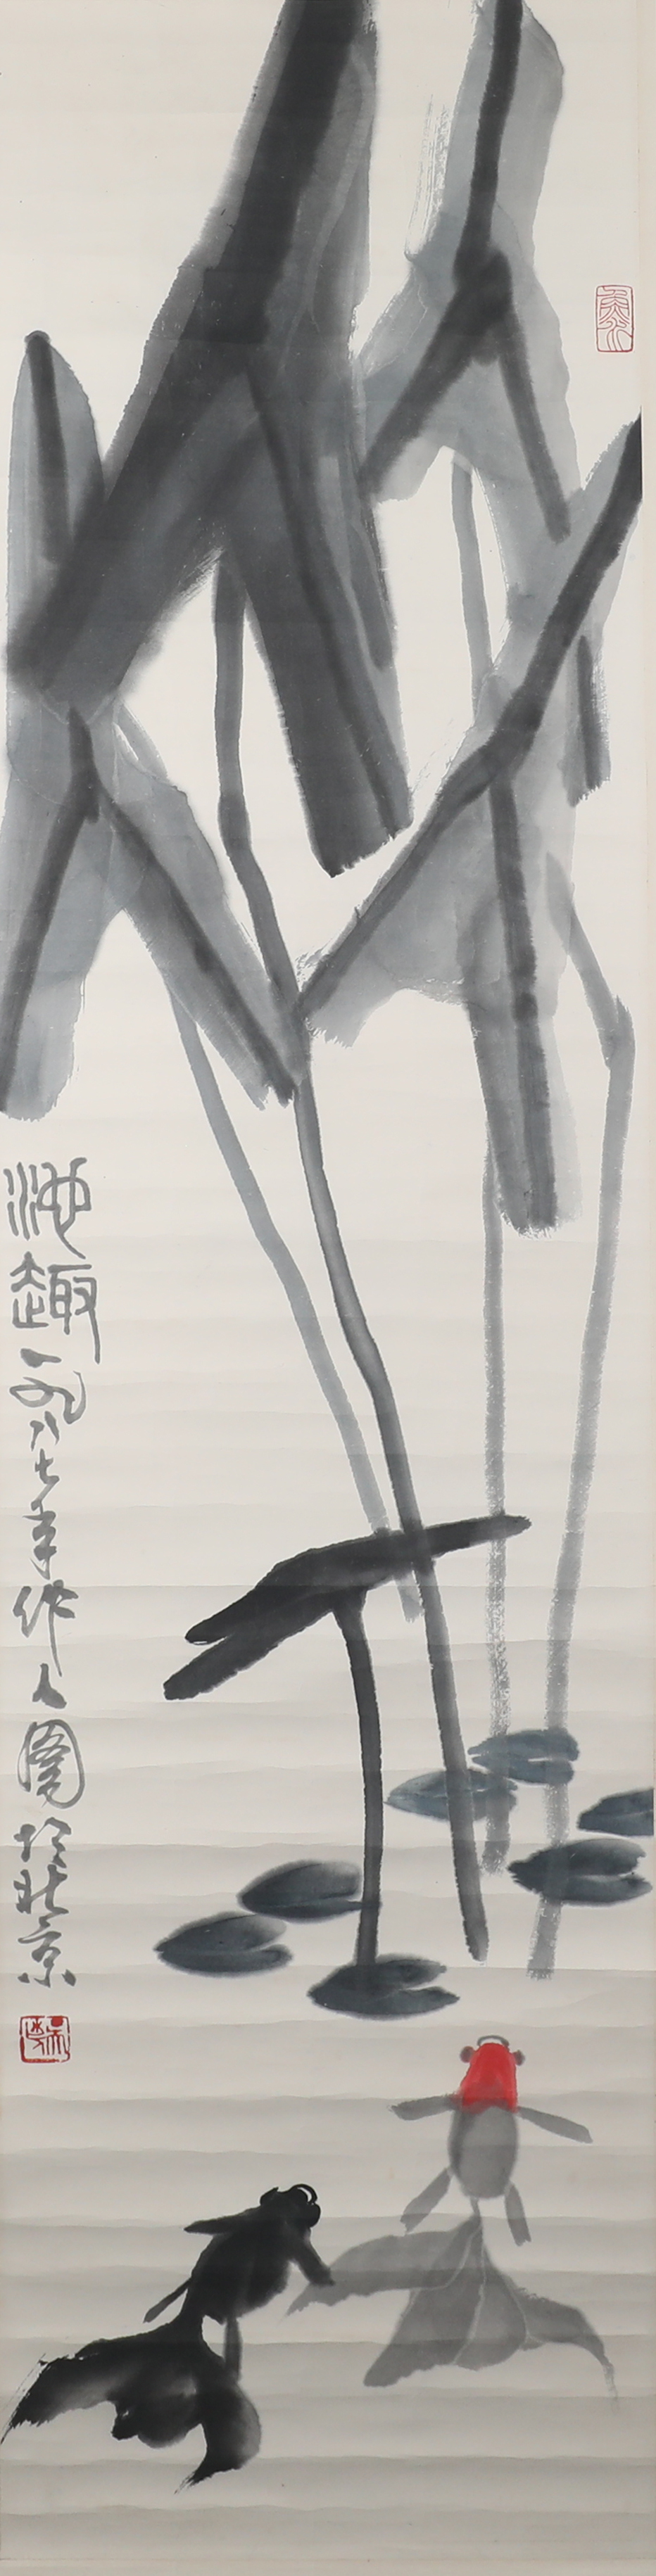 池趣一九八七年作人圖於北京